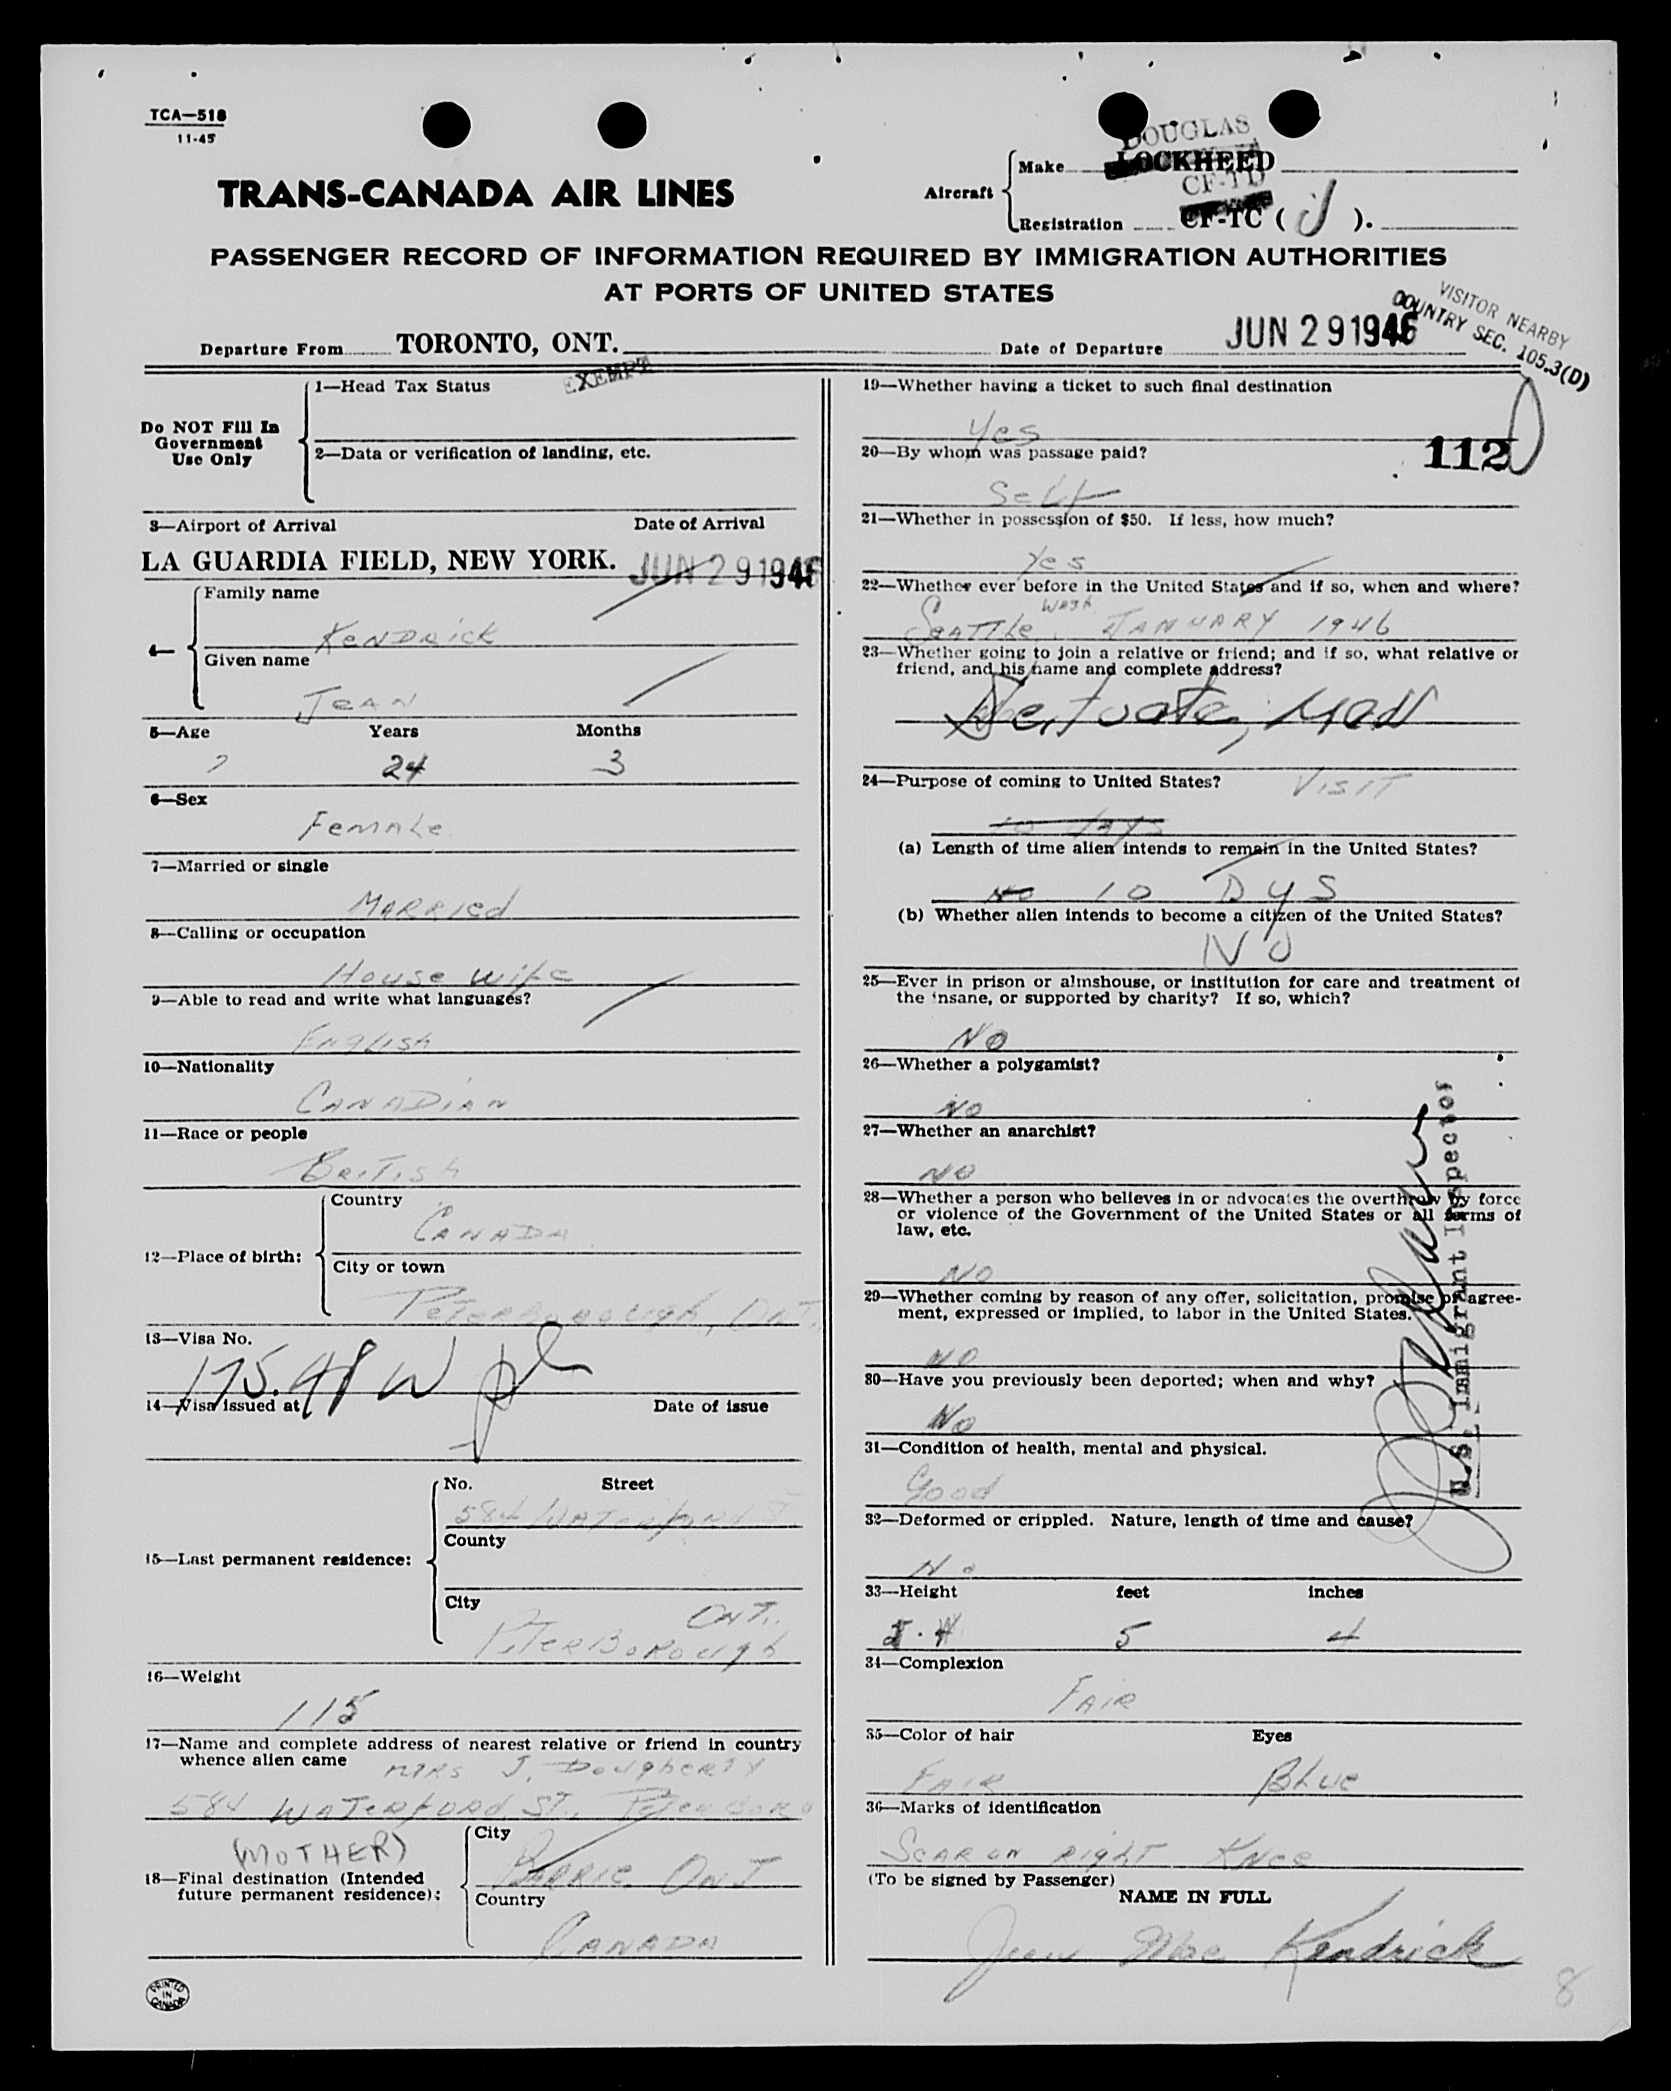 TCA—518
11-45
TRANS-CANADA AIR LINES
DOUGLAS
Aircraft
Make LOCKHEED
CF-TD
Registration CF-TC ( J ).
PASSENGER RECORD OF INFORMATION REQUIRED BY IMMIGRATION AUTHORITIES
AT PORTS OF UNITED STATES
VISITOR NEARBY
COUNTRY SEC. 105.3(D)
Departure From TORONTO, ONT. Date of Departure JUN 29 1946
Do NOT Fill In
Government
Use Only
1—Head Tax Status EXEMPT
2—Data or verification of landing, etc.
3—Airport of Arrival Date of Arrival
LA GUARDIA FIELD, NEW YORK. JUN 29 1946
4—
Family name
KENDRICK
Given name
JEAN
5—Age Years Months
24 3
6—Sex
Female
7—Married or single
MARRIED
8—Calling or occupation
House wife
9—Able to read and write what languages?
ENGLISH
10—Nationality
CANADIAN
11—Race or people
BRITISH
12—Place of birth:
Country
CANADA
City or town
PETERBOROUGH, ONT.
13—Visa No.
14—Visa issued at Date of issue
15—Last permanent residence:
No. Street
584 WATERFORD ST.
County
City
ONT.
PETERBOROUGH
16—Weight
115
17—Name and complete address of nearest relative or friend in country
whence alien came MRS J. DOUGHERTY
584 WATERFORD ST., PETERBORO
(MOTHER)
18—Final destination (Intended
future permanent residence):
City
BARRIE ONT
Country
CANADA
PRINTED
IN
CANADA
19—Whether having a ticket to such final destination
Yes
112
20—By whom was passage paid?
Self
21—Whether in possession of $50. If less, how much?
Yes
22—Whether ever before in the United States and if so, when and where?
SEATTLE WASH. JANUARY 1946
23—Whether going to join a relative or friend; and if so, what relative or
friend, and his name and complete address?
24—Purpose of coming to United States? VISIT
10 days
(a) Length of time alien intends to remain in the United States?
No 10 DYS
(b) Whether alien intends to become a citizen of the United States?
NO
25—Ever in prison or almshouse, or institution for care and treatment of
the insane, or supported by charity? If so, which?
NO
26—Whether a polygamist?
NO
27—Whether an anarchist?
NO
28—Whether a person who believes in or advocates the overthrow by force
or violence of the Government of the United States or all forms of
law, etc.
NO
29—Whether coming by reason of any offer, solicitation, promise or agree-
ment, expressed or implied, to labor in the United States.
NO
30—Have you previously been deported; when and why?
No
31—Condition of health, mental and physical.
Good
32—Deformed or crippled. Nature, length of time and cause?
No
U.S. Immigrant Inspector
33—Height feet inches
5 4
34—Complexion
FAIR
35—Color of hair Eyes
FAIR BLUE
36—Marks of identification
SCAR ON RIGHT KNEE
(To be signed by Passenger)
NAME IN FULL
Jean Mae Kendrick
8